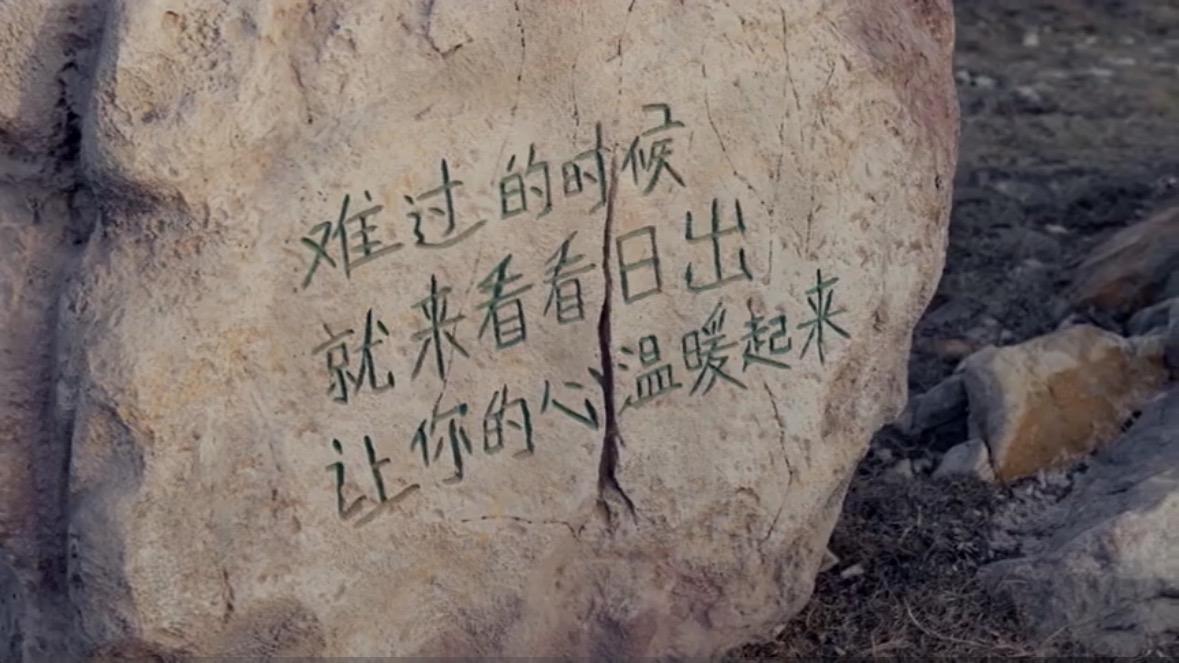 难过的时候
就来看看日出
让你的心温暖起来